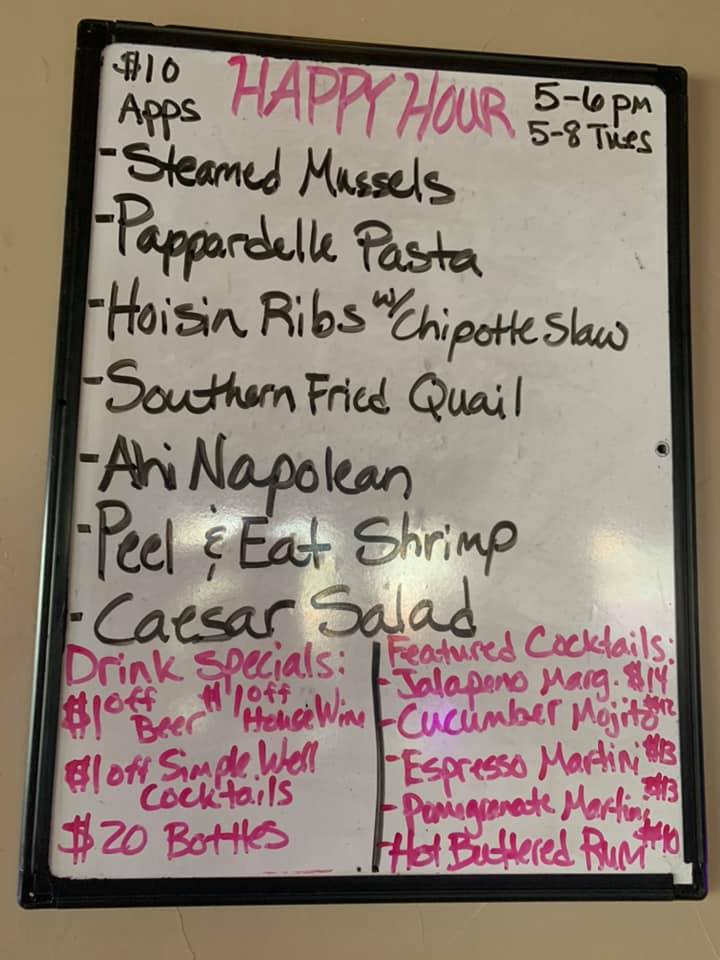 $10 Apps
HAPPY HOUR
5-6pm
5-8 Tues
- Steamed Mussels
- Pappardelle Pasta
- Hoisin Ribs w/ Chipotle Slaw
- Southern Fried Quail
- Ahi Napolean
- Peel & Eat Shrimp
- Caesar Salad
Drink Specials:
$1 off Beer $1 off House Wine
$1 off Simple Well
Cocktails
$20 Bottles
Featured Cocktails:
- Jalapeno Marg. $14
- Cucumber Mojito $12
- Espresso Martini $13
- Pomegrenate Martini $13
- Hot Buttered Rum $10